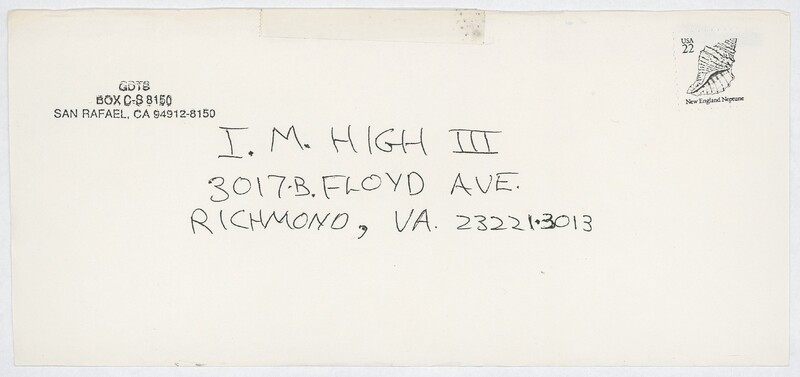 GDTS
BOX C-S 8150
SAN RAFAEL, CA 94912-8150
USA
22
New England Neptune
I. M. HIGH III
3017·B. FLOYD AVE.
RICHMOND, VA. 23221·3013